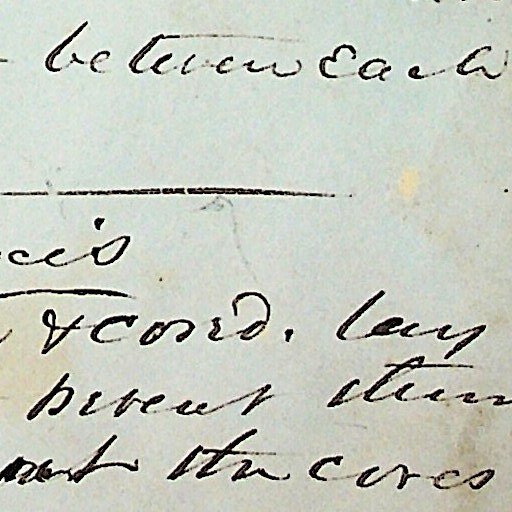 between each
& cored. lay
prevent them
out the cores